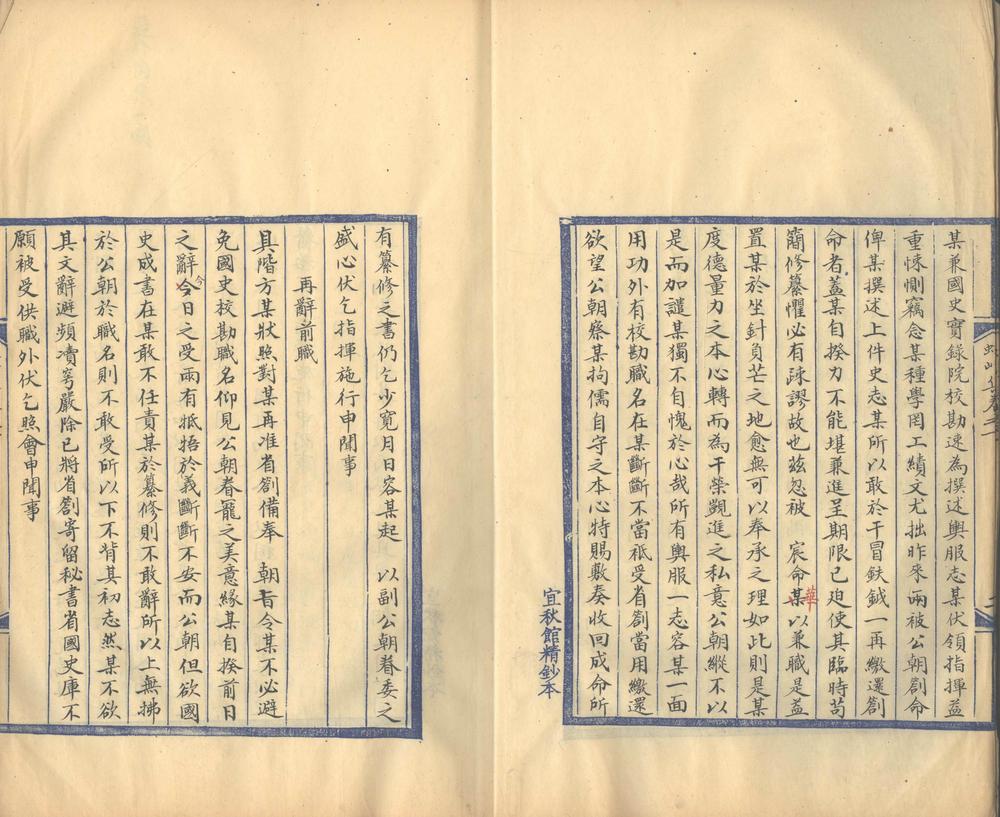 某兼國史實錄院校勘速為撰述輿服志某伏領指揮益
重悚惻竊念某種學罔工績文尤拙昨來兩被公朝劄命
俾某撰述上件史志某所以敢於干冒鈇鉞一再繳還劄
命者蓋某自揆力不能堪兼進呈期限已廹使其臨時苟
簡修纂懼必有疎謬故也茲忽被　宸命某以兼職是益
華
置某於坐針負芒之地愈無可以奉承之理如此則是某
度德量力之本心轉而為干榮覬進之私意公朝縱不以
是而加譴某獨不自愧於心哉所有輿服一志容某一面
用功外有校勘職名在某斷斷不當祗受省劄當用繳還
欲望公朝察某拘儒自守之本心特賜敷奏收回成命所
宜秋館精鈔本
有纂修之書仍乞少寬月日容某起　以副公朝眷委之
盛心伏乞指揮施行申聞事
再辭前職
具階方某狀照對某再准省劄備奉　朝旨令某不必避
免國史校勘職名仰見公朝眷寵之美意緣某自揆前日
之辭今日之受兩有抵牾於義斷斷不安而公朝但欲國
今
史成書在某敢不任責某於纂修則不敢辭所以上無拂
於公朝於職名則不敢受所以下不背其初志然某不欲
其文辭避頻瀆穹嚴除已將省劄寄留秘書省國史庫不
願被受供職外伏乞照會申聞事